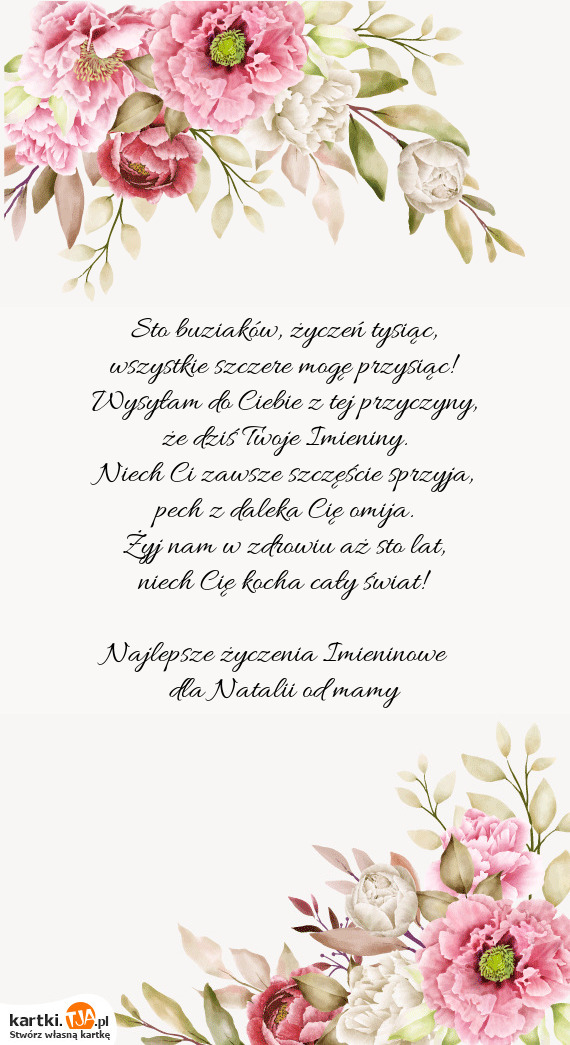 Sto buziaków, życzeń tysiąc,
wszystkie szczere mogę przysiąc!
Wysyłam do Ciebie z tej przyczyny,
że dziś Twoje Imieniny.
Niech Ci zawsze szczęście sprzyja,
pech z daleka Cię omija.
Żyj nam w zdrowiu aż sto lat,
niech Cię kocha cały świat!
Najlepsze życzenia Imieninowe
dla Natalii od mamy
kartki.TJA.pl
Stwórz własną kartkę